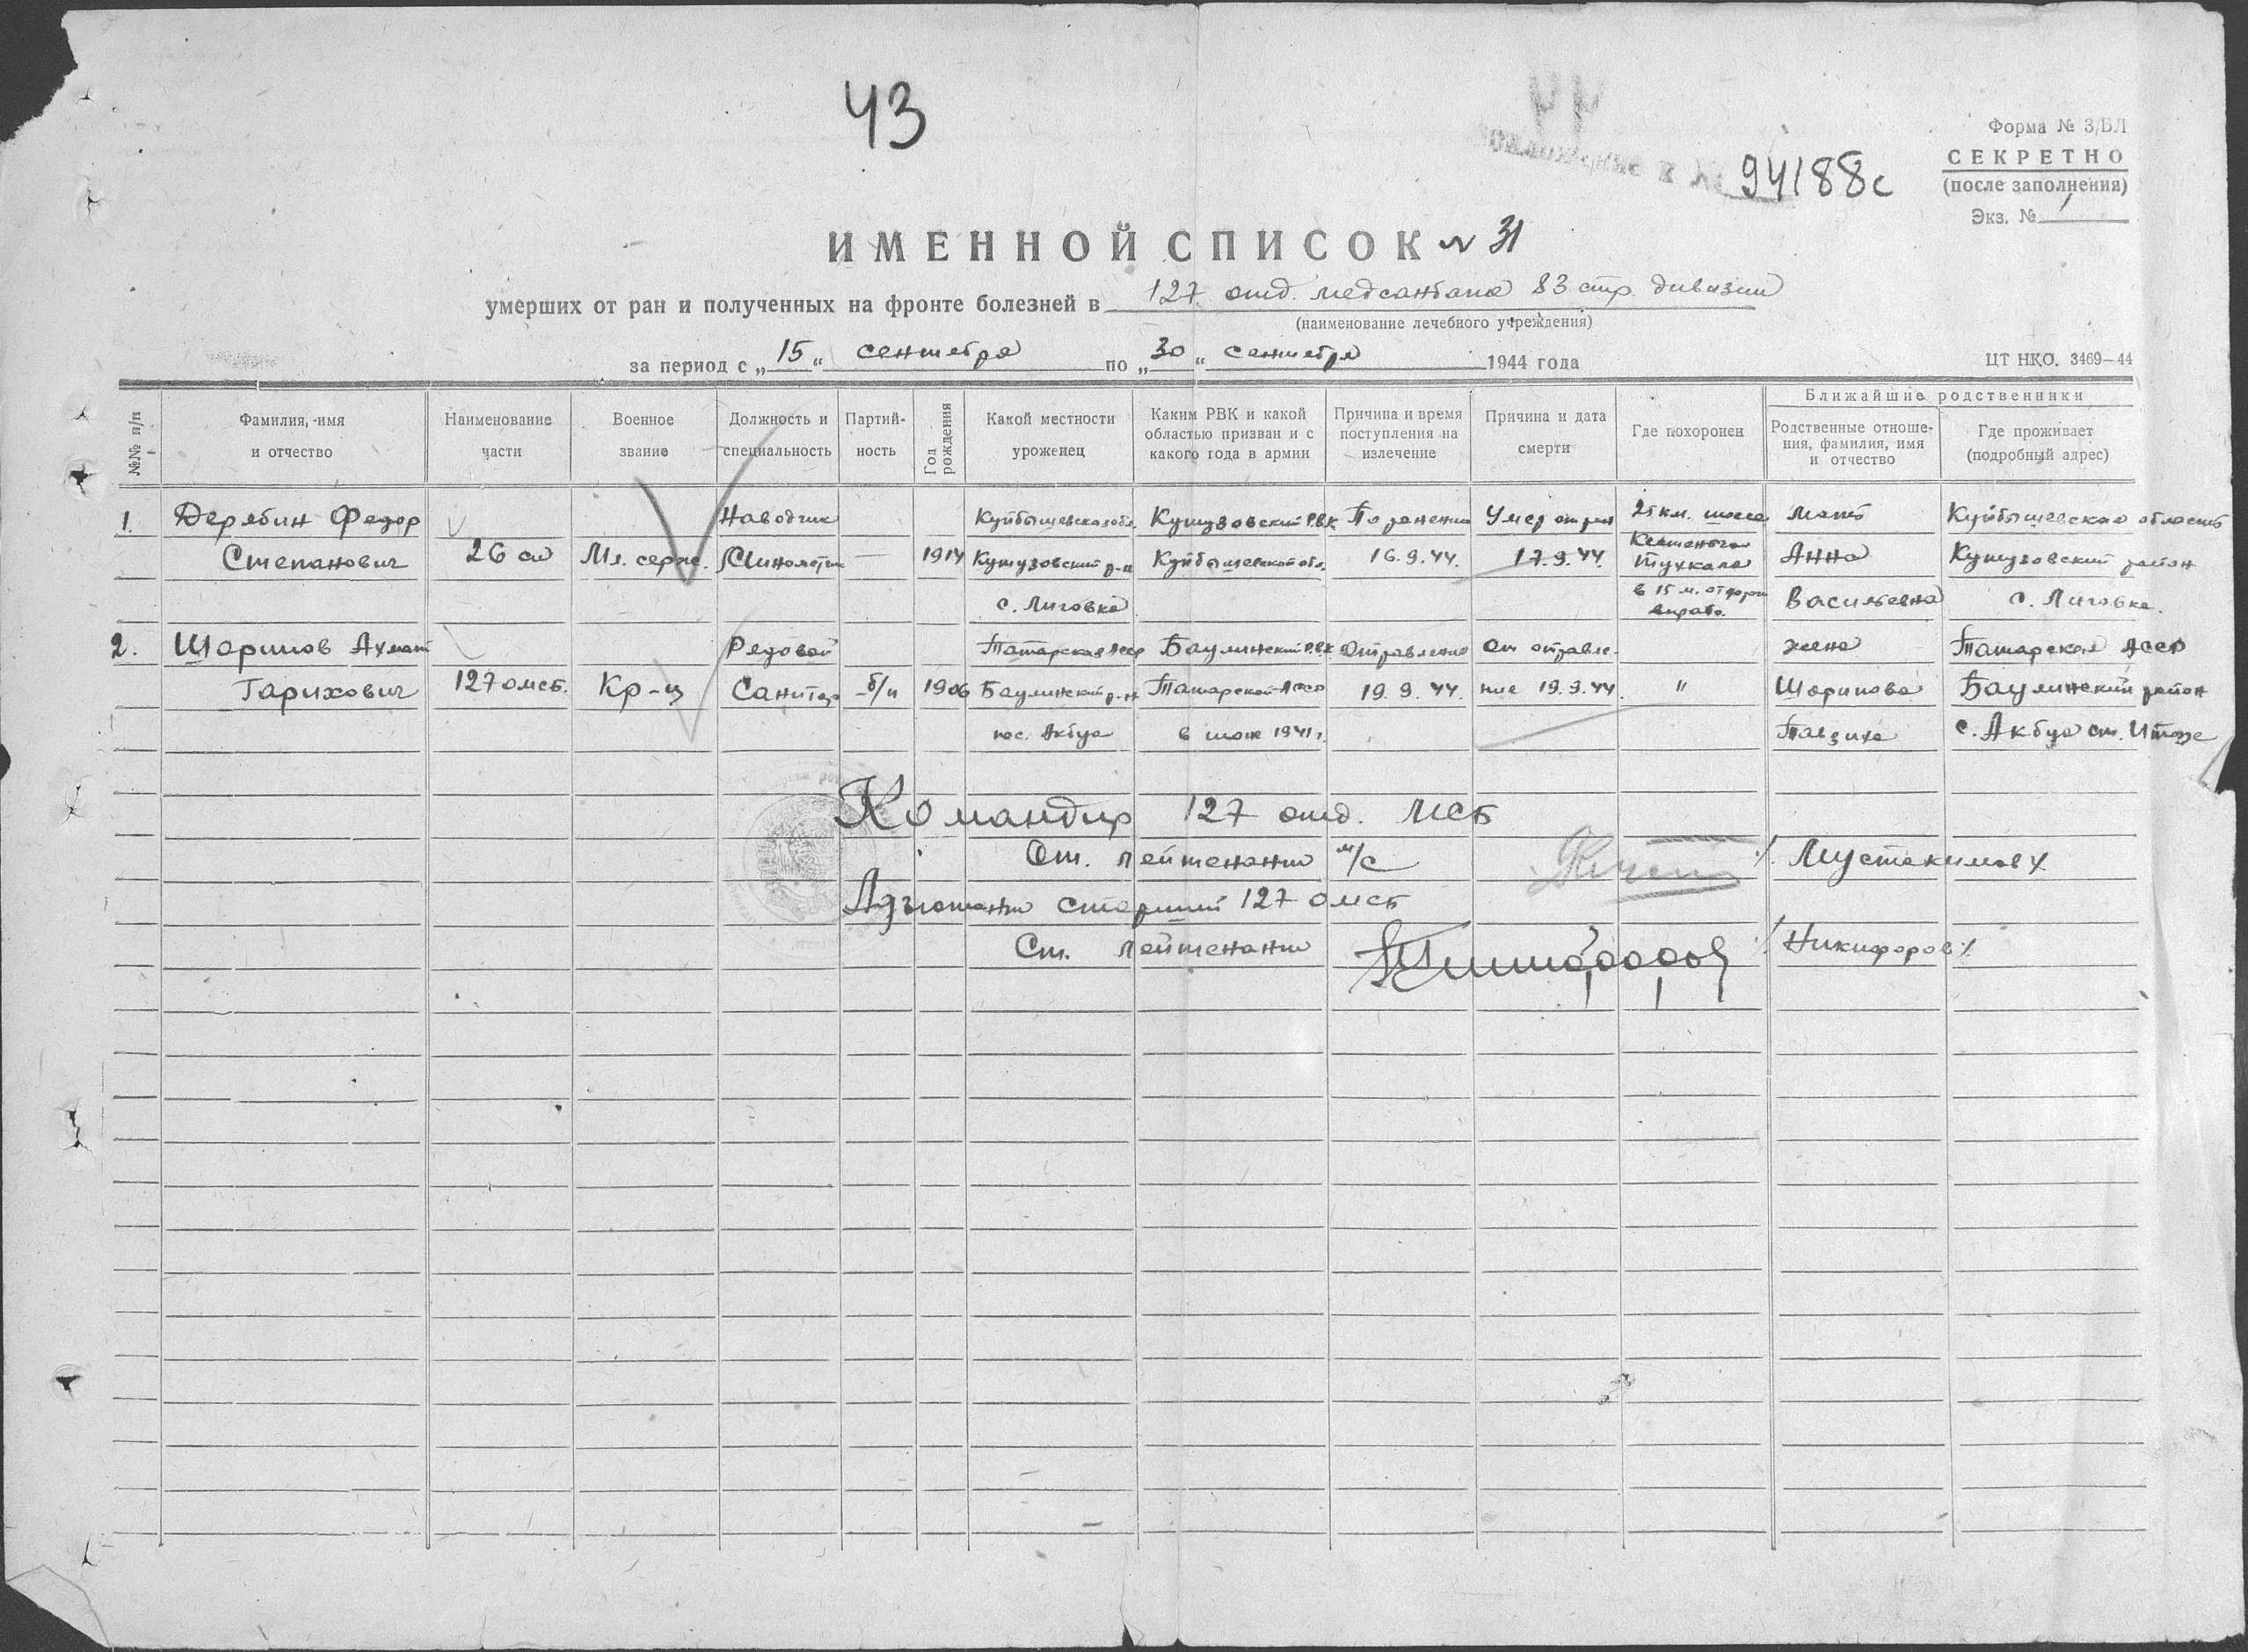 43
44
94188с
Форма № 3/БЛ
СЕКРЕТНО
(после заполнения)
Экз. № 1
ИМЕННОЙ СПИСОК № 31
умерших от ран и полученных на фронте болезней в 127 отд. медсанбате 83 стр. дивизии
(наименование лечебного учреждения)
за период с „15“ сентября по „30“ сентября 1944 года
ЦТ НКО. 3469—44
№№ п/п
Фамилия, имя и отчество
Наименование части
Военное звание
Должность и специальность
Партийность
Год рождения
Какой местности уроженец
Каким РВК и какой областью призван и с какого года в армии
Причина и время поступления на излечение
Причина и дата смерти
Где похоронен
Ближайшие родственники
Родственные отношения, фамилия, имя и отчество
Где проживает (подробный адрес)
1. Дерябин Федор Наводчик Куйбышевская обл. Кутузовский РВК По ранению Умер от ран 25 км. шоссе мать Куйбышевская область
Степанович 26 сп Мл. серж. Минометчик — 1914 Кутузовский р-н Куйбышевской обл. 16.9.44. 17.9.44. Кестеньга Тухкала Анна Кутузовский район
с. Лиговка в 15 м. от дороги вправо. Васильевна с. Лиговка.
2. Шарипов Ахмат Рядовой Татарская АССР Баулинский РВК Отравление От отравле- жена Татарская АССР
Гарихович 127 омсб. Кр-ц Санитар б/п 1906 Баулинский р-н Татарской АССР 19.9.44. ние 19.9.44. " Шарипова Баулинский район
пос. Акбуа в июне 1941 г. с. Акбуа ст.
Командир 127 отд. МСБ
Ст. лейтенант м/с /Мустакимов/
Адъютант старший 127 омсб
Ст. лейтенант /Никифоров/